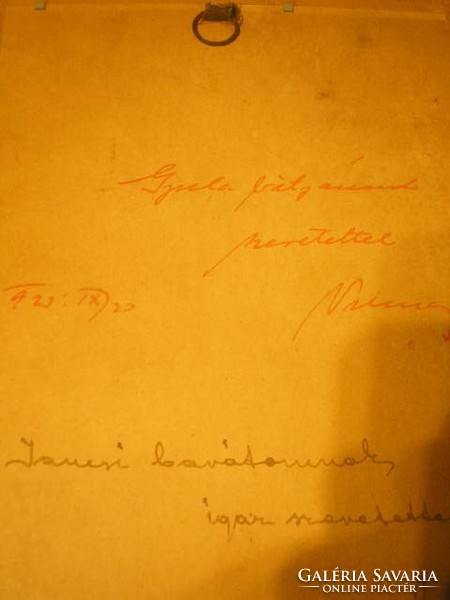 Gyula bátyámnak
szeretettel
920. IX/20
Vilma
Jancsi barátomnak,
igaz szeretette
GALÉRIA SAVARIA
ONLINE PIACTÉR